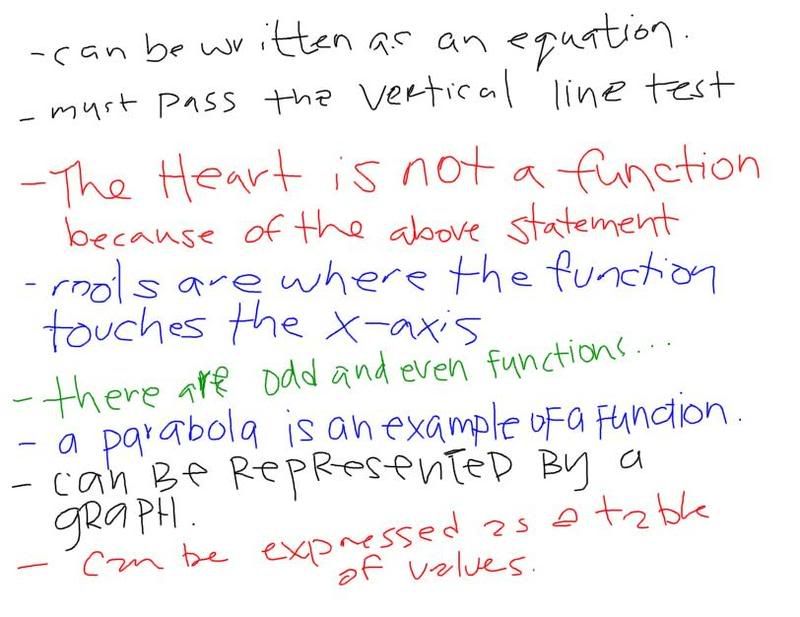 - can be written as an equation.
- must pass the vertical line test
- The Heart is not a function
because of the above statement
- roots are where the function
touches the x-axis
- there are odd and even functions...
- a parabola is an example of a function.
- can Be RepResenTeD By a
gRapH.
- can be expressed as a table
of values.